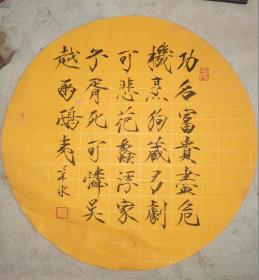 功名富貴盡危
機烹狗藏弓劇
可悲范蠡浮家
子胥死可憐吳
越兩鴟夷